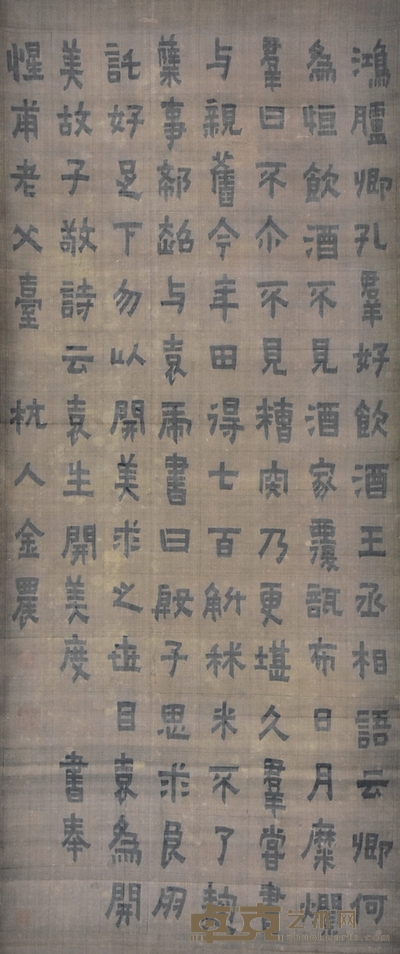 鴻臚卿孔羣好飲酒王丞相語云卿何
為恒飲酒不見酒家覆瓿布日月糜爛
羣曰不尒不見糟肉乃更堪久羣嘗書
与親舊今年田得七百斛秫米不了麴
糱事郗超与袁虎書曰殷子思求良朋
託好足下勿以開美求之世目袁為開
美故子敬詩云袁生開美度 書奉
惺甫老父臺 杭人金農